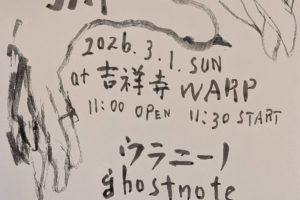 2026.3.1.SUN
at 吉祥寺 WARP
11:00 OPEN 11:30 START
ウラニーノ
ghostnote